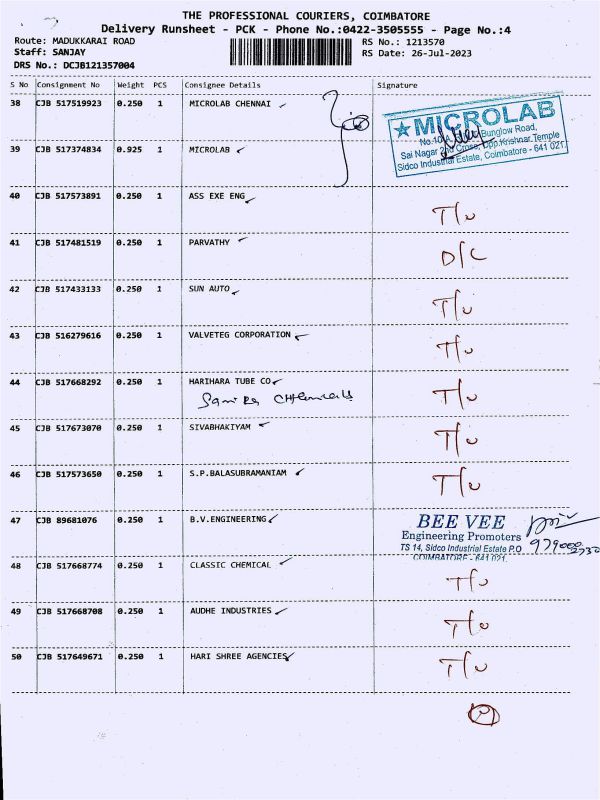 THE PROFESSIONAL COURIERS, COIMBATORE
Delivery Runsheet - PCK - Phone No.:0422-3505555 - Page No.:4
Route: MADUKKARAI ROAD RS No.: 1213570
Staff: SANJAY RS Date: 26-Jul-2023
DRS No.: DCJB121357004
S No Consignment No Weight PCS Consignee Details Signature
38 CJB 517519923 0.250 1 MICROLAB CHENNAI
★MICROLAB
Bunglow Road,
Sai Nagar 2nd Cross, Opp.Krishnar Temple
Sidco Industrial Estate, Coimbatore - 641 021.
39 CJB 517374834 0.925 1 MICROLAB
40 CJB 517573891 0.250 1 ASS EXE ENG
T/u
41 CJB 517481519 0.250 1 PARVATHY
D/C
42 CJB 517433133 0.250 1 SUN AUTO
T/u
43 CJB 516279616 0.250 1 VALVETEG CORPORATION
T/u
44 CJB 517668292 0.250 1 HARIHARA TUBE CO
Chemicals T/u
45 CJB 517673070 0.250 1 SIVABHAKIYAM
T/u
46 CJB 517573650 0.250 1 S.P.BALASUBRAMANIAM
T/u
47 CJB 89681076 0.250 1 B.V.ENGINEERING
BEE VEE
Engineering Promoters
TS 14, Sidco Industrial Estate P.O
COIMBATORE - 641 021.
48 CJB 517668774 0.250 1 CLASSIC CHEMICAL
T/u
49 CJB 517668708 0.250 1 AUDHE INDUSTRIES
T/u
50 CJB 517649671 0.250 1 HARI SHREE AGENCIES
T/u